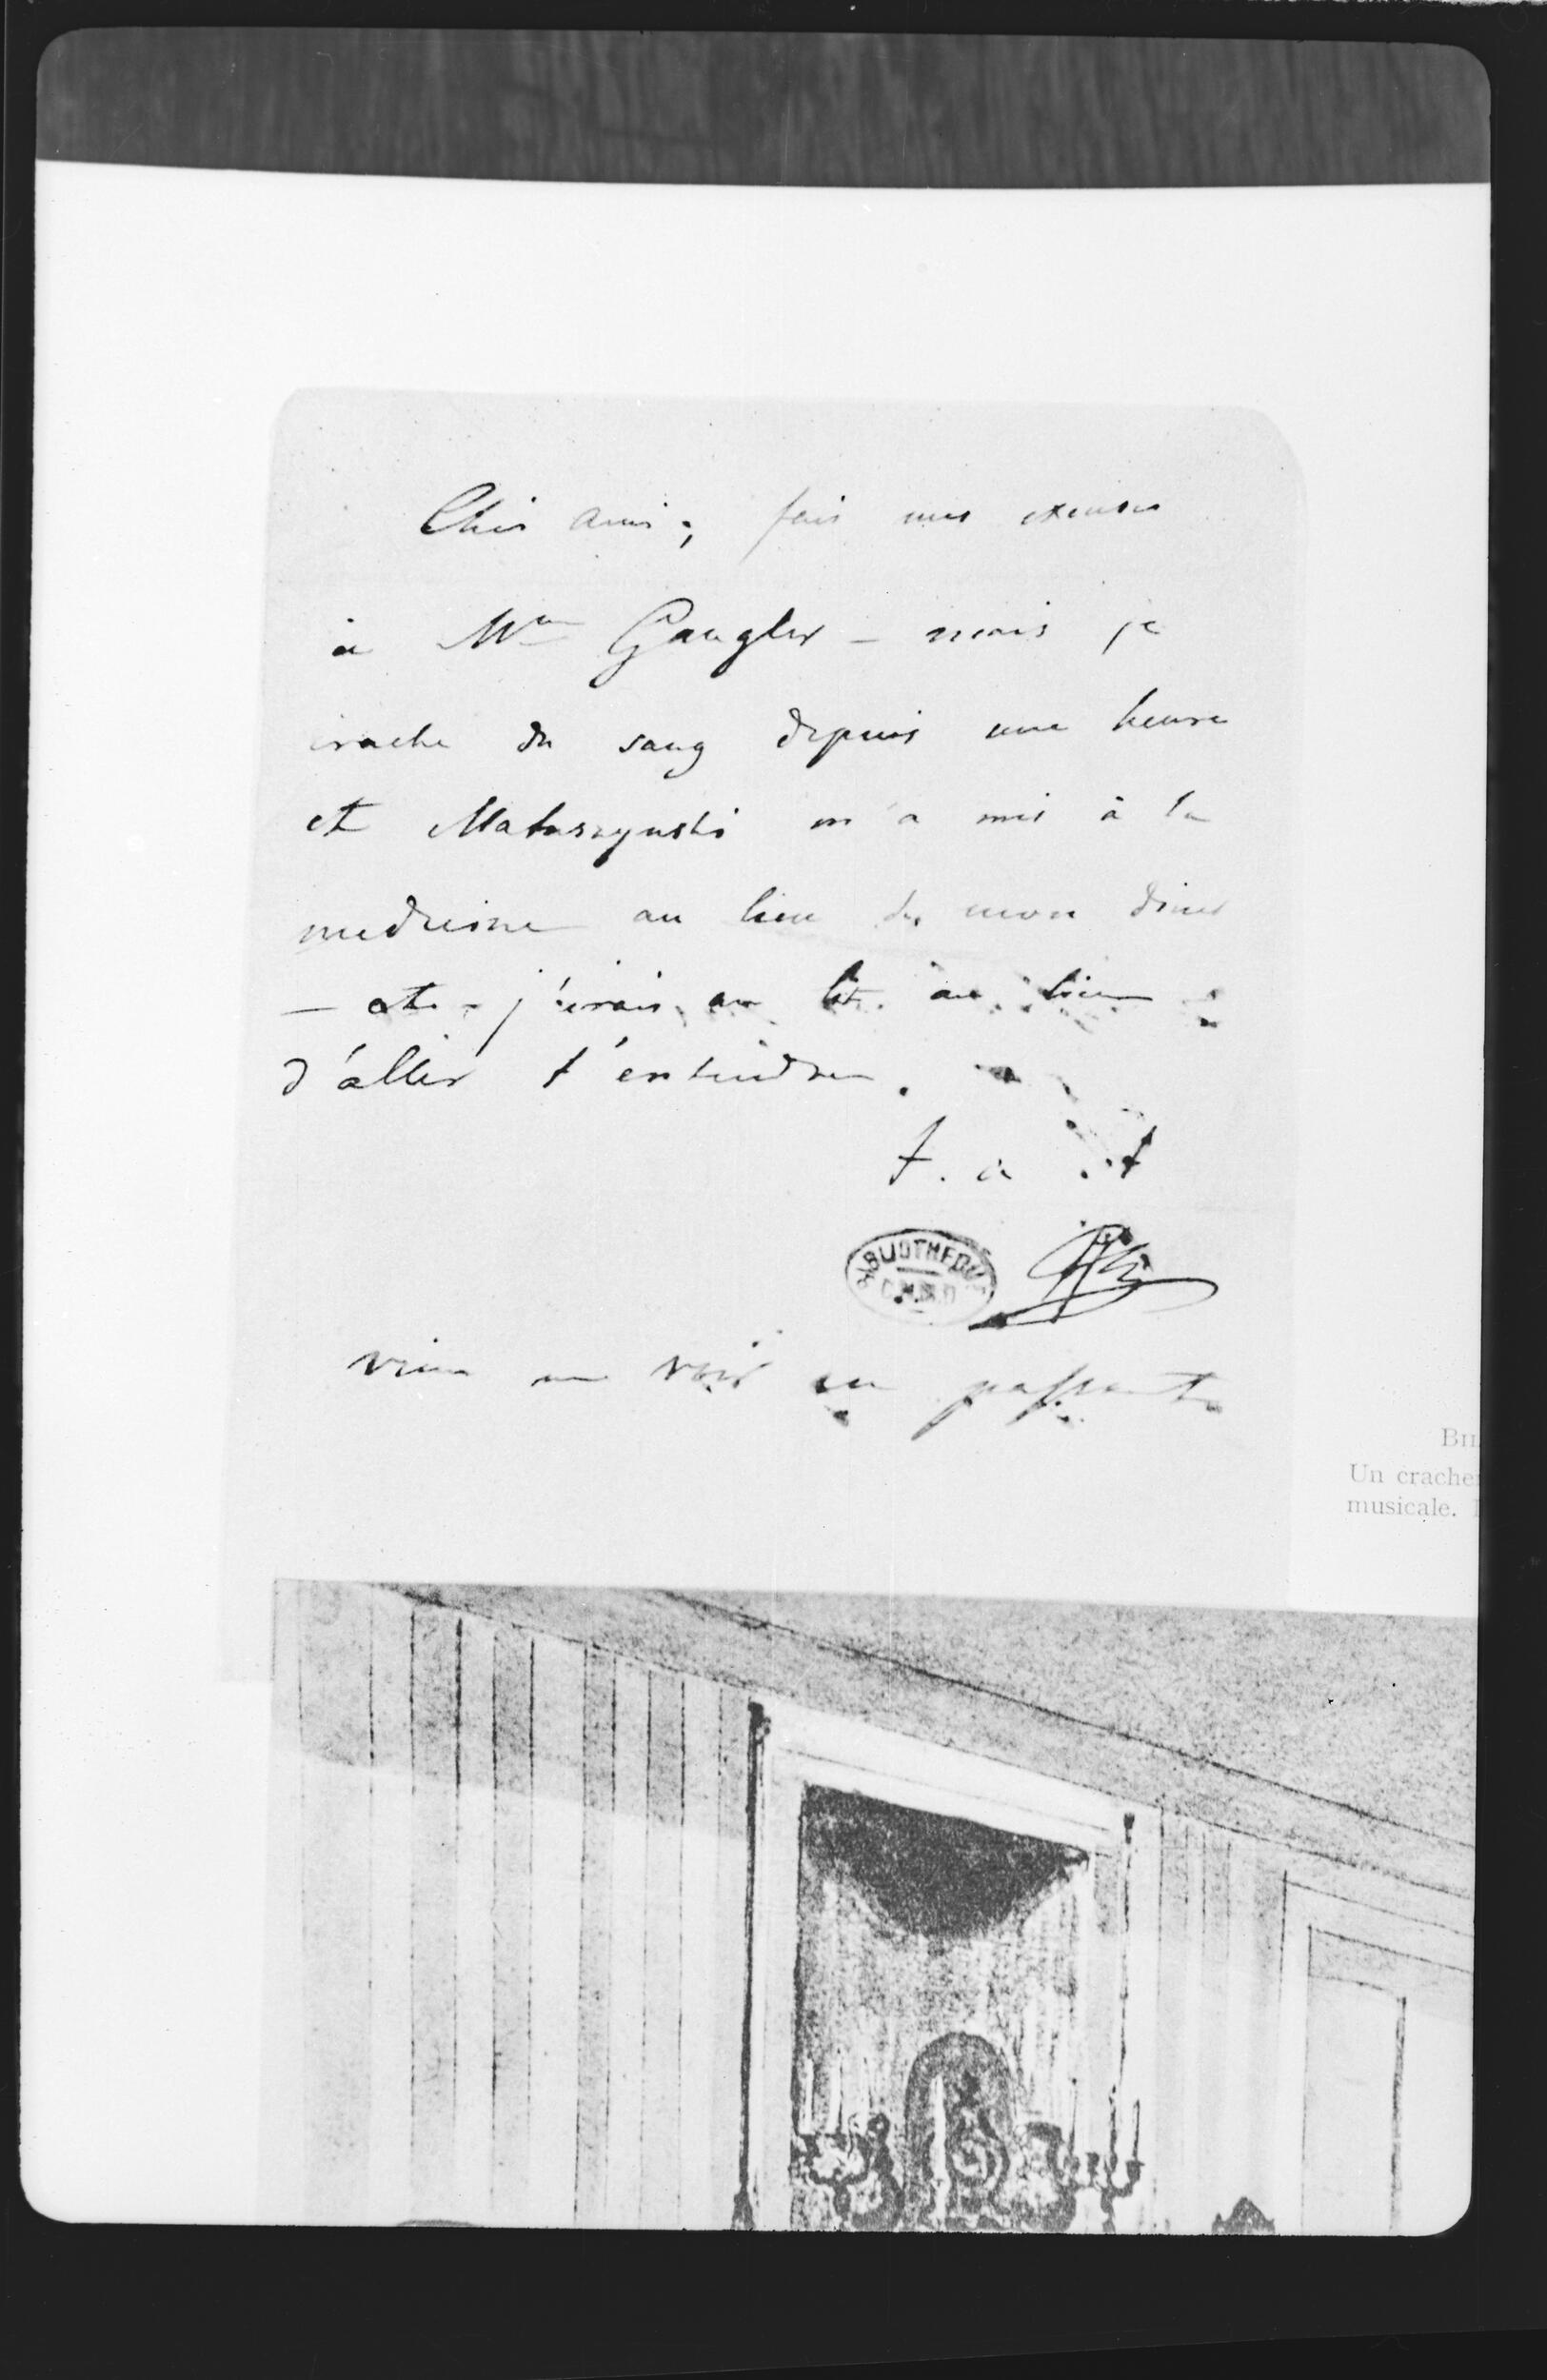 Cher ami; fais mes excuses
à Mme Gaugler – mais je
crache du sang depuis une heure
et Matuszynski m'a mis à la
medecine au lieu de mon diner
– et – j'irais au lit au lieu
d'aller t'entendre.
t. à t
BIBLIOTHEQUE
Ch
viens me voir en passant
BIL
Un crache
musicale.